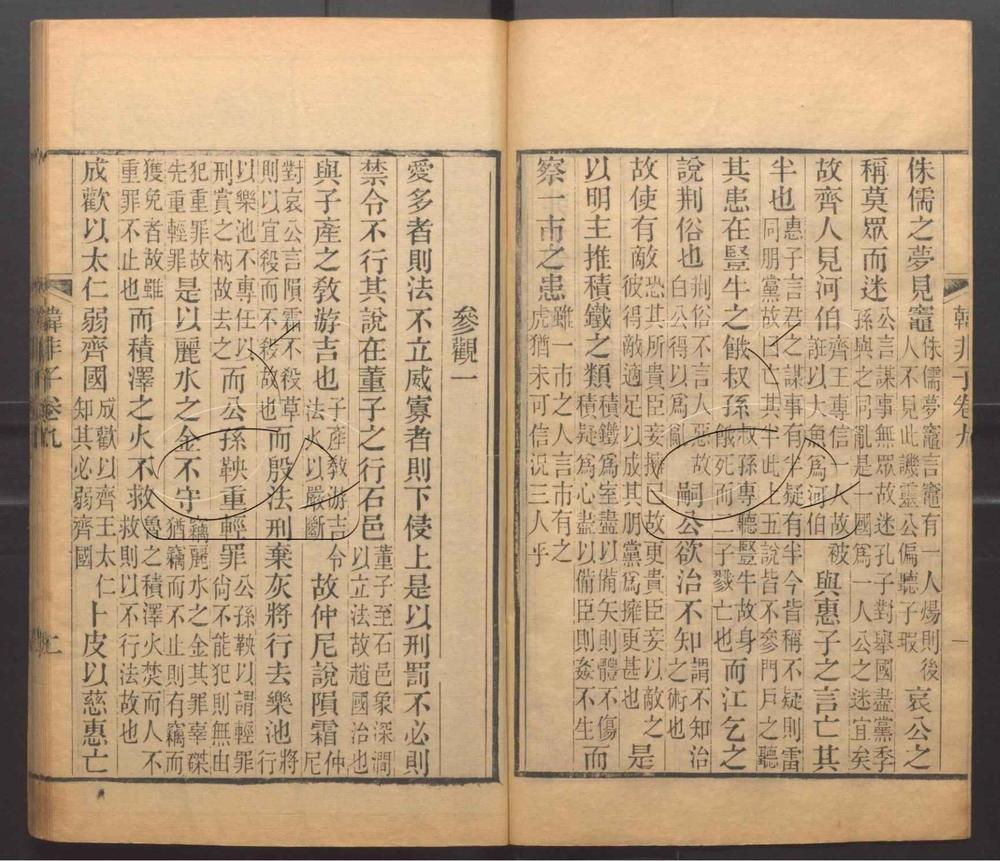 侏儒之夢見竈侏儒夢竈言竈有一人煬則後人不見此譏靈公偏聽子瑕哀公之
稱莫眾而迷公言謀事無眾故迷孔子對舉國盡黨季孫與之同亂是一國爲一人公之迷宜矣
故齊人見河伯齊王專信一人故被誑以大魚爲河伯與惠子之言亡其
半也惠子言君之謀事有半疑有半今皆稱不疑則雷同朋黨故曰亡其半此上五說皆不參門戶之聽
其患在豎牛之餓叔孫叔孫專聽豎牛故身餓死而二子戮亡也而江乞之
說荆俗也荆俗不言人惡故白公得以爲亂嗣公欲治不知謂不知治之術也
故使有敵恐其所貴臣妾擁已故更貴臣妾以敵之彼得敵適足以成其朋黨爲擁更甚也是
以明主推積鐵之類積鐵爲室盡以備矢則體不傷積疑爲心盡以備臣則姦不生而
察一市之患雖一市之人言市有之虎猶未可信況三人乎
韓非子卷九
參觀一
愛多者則法不立威寡者則下侵上是以刑罰不必則
禁令不行其說在董子之行石邑董子至石邑象深澗以立法故趙國治也
與子產之教游吉也子產教游吉令法火以嚴斷故仲尼說隕霜仲尼
對哀公言隕霜不殺草則以宜殺而不殺故也而殷法刑棄灰將行去樂池將行
以樂池不專任以刑賞之柄故去之而公孫鞅重輕罪公孫鞅以謂輕罪尙不能犯則無由
犯重罪故先重輕罪是以麗水之金不守竊麗水之金其罪辜磔猶竊而不止則有竊而
獲免者故雖重罪不止也而積澤之火不救魯之積澤火焚而人不救則以不行法故也
成歡以太仁弱齊國成歡以齊王太仁知其必弱齊國卜皮以慈惠亡
韓非子卷九